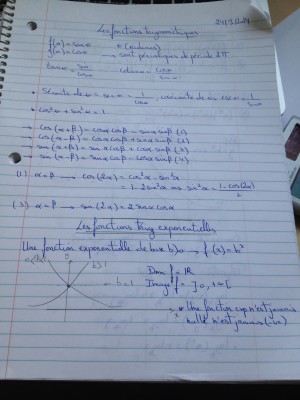 Les fonctions trigonométriques
f(x) = sin x
f(x) = cos x
(radians)
sont périodiques de période 2π
tan x = sin x / cos x
cotan x = cos x / sin x
Sécante de x = sec x = 1 / cos x, cosécante de x = csc x = 1 / sin x
cos² x + sin² x = 1
→ cos (α + β) = cos α cos β - sin α sin β (1)
→ cos (α - β) = cos α cos β + sin α sin β (2)
→ sin (α + β) = sin α cos β + cos α sin β (3)
→ sin (α - β) = sin α cos β - cos α sin β (4)
(1) α = β → cos (2α) = cos² α - sin² α
= 1 - 2 sin² α => sin² α = 1 - cos(2α) / 2
(3) α = β → sin (2α) = 2 sin α cos α
Les fonctions exponentielles
Une fonction exponentielle de base b > 0 → f(x) = b^x
b > 1
b = 1
Dom f = ℝ
Image f = ]0, +∞[
* Une fonction exp n'est jamais
nulle n'est jamais (-ve)